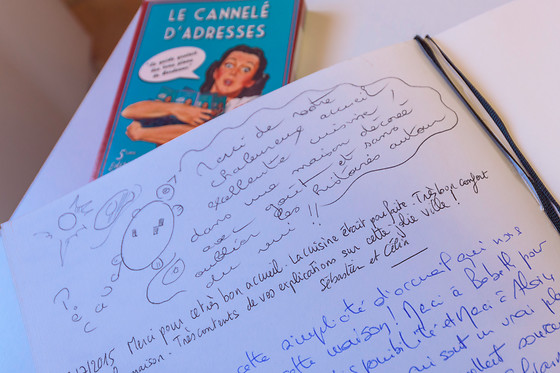 LE CANNELÉ
D'ADRESSES
Le guide gourmand
des bons plans
de Bordeaux
5
Merci de votre
chaleureux accueil
excellente cuisine !
dans une maison décorée
avec goût et sans
oublier les histoires autour
du vin !!
Pécad
/2015 Merci pour ce très bon accueil. La cuisine était parfaite. Très bon confort
maison. Très contents de vos explications sur cette jolie ville !
Sébastien et Célia
cette simplicité d'accueil qui nous
cette maison ! Merci à Babeth pour
disponibilité et Merci à Alain
qui sont un vrai